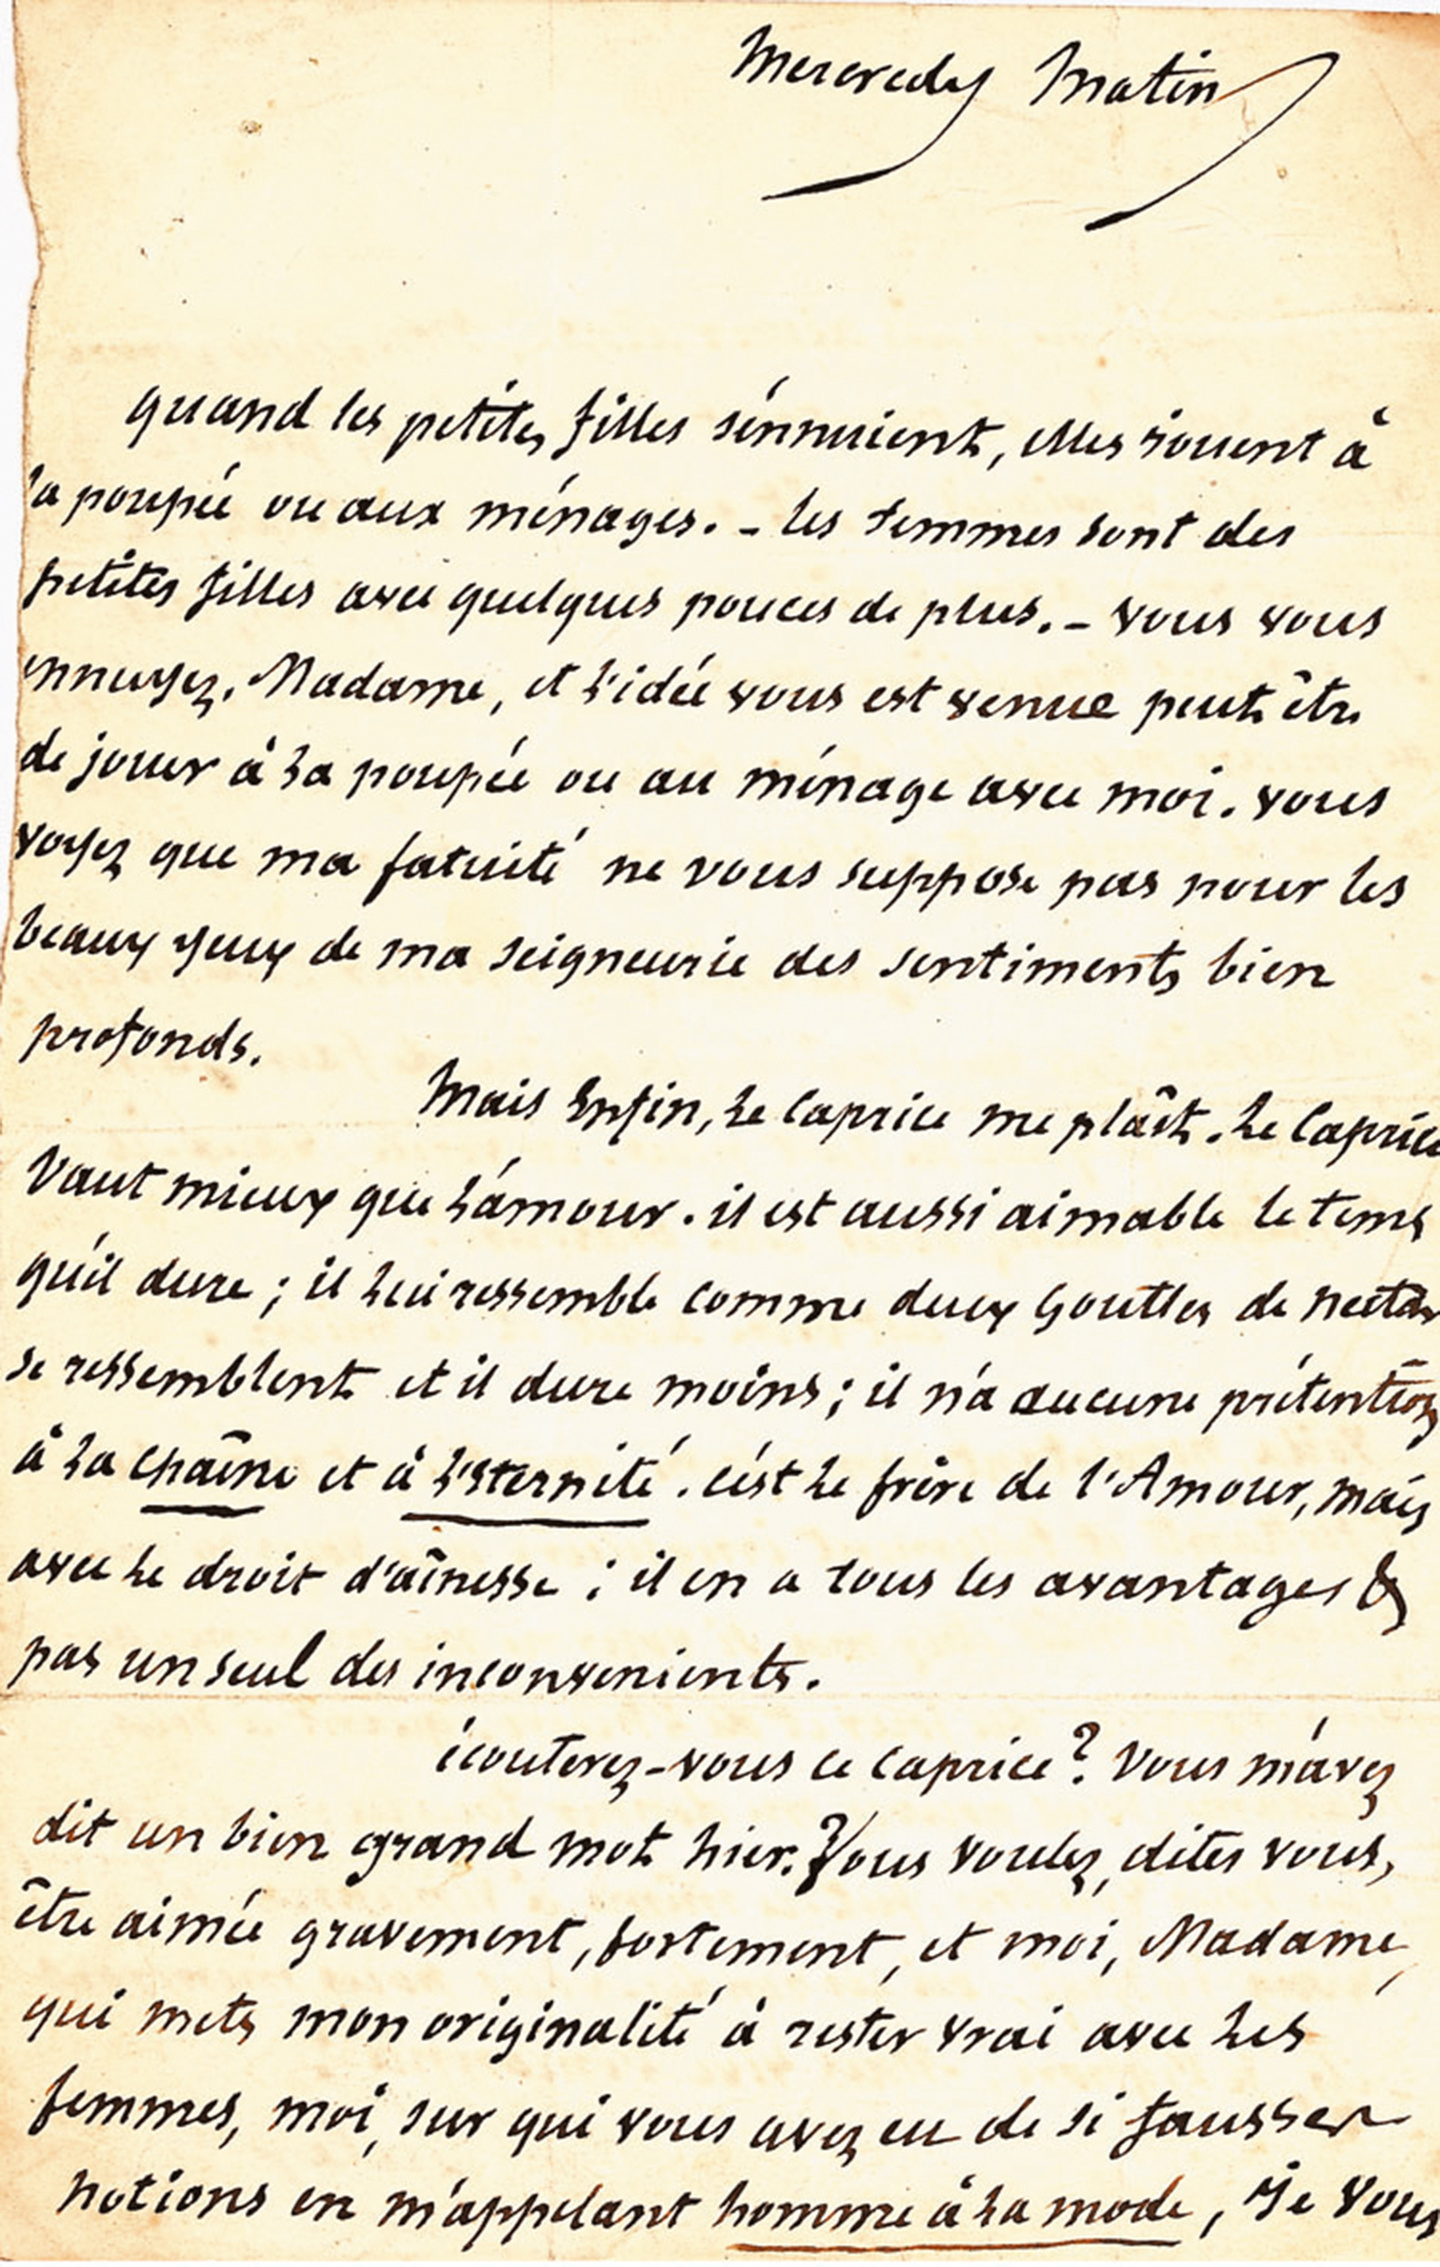 Mercredy Matin
quand les petites filles s'ennuient, elles jouent à
la poupée ou aux ménages. - les femmes sont des
petites filles avec quelques pouces de plus. - vous vous
ennuyez, Madame, et l'idée vous est venue peut être
de jouer à la poupée ou au ménage avec moi. vous
voyez que ma fatuité ne vous suppose pas pour les
beaux yeux de ma seigneurie des sentiments bien
profonds.
Mais Enfin, le Caprice me plaît. Le Caprice
Vaut mieux que l'amour. il est aussi aimable le tems
qu'il dure ; il lui ressemble comme deux Gouttes de nectar
se ressemblent et il dure moins ; il n'a aucune prétention
à la chaîne et à l'Eternité. c'est le frère de l'Amour, mais
avec le droit d'aînesse ; il en a tous les avantages &
pas un seul des inconvenients.
écouterez-vous ce Caprice ? Vous m'avez
dit un bien grand mot hier. Vous voulez, dites vous,
être aimée gravement, fortement, et moi, Madame,
qui mets mon originalité à rester vrai avec les
femmes, moi, sur qui vous avez eu de si fausses
notions en m'appelant homme à la mode, Je vous